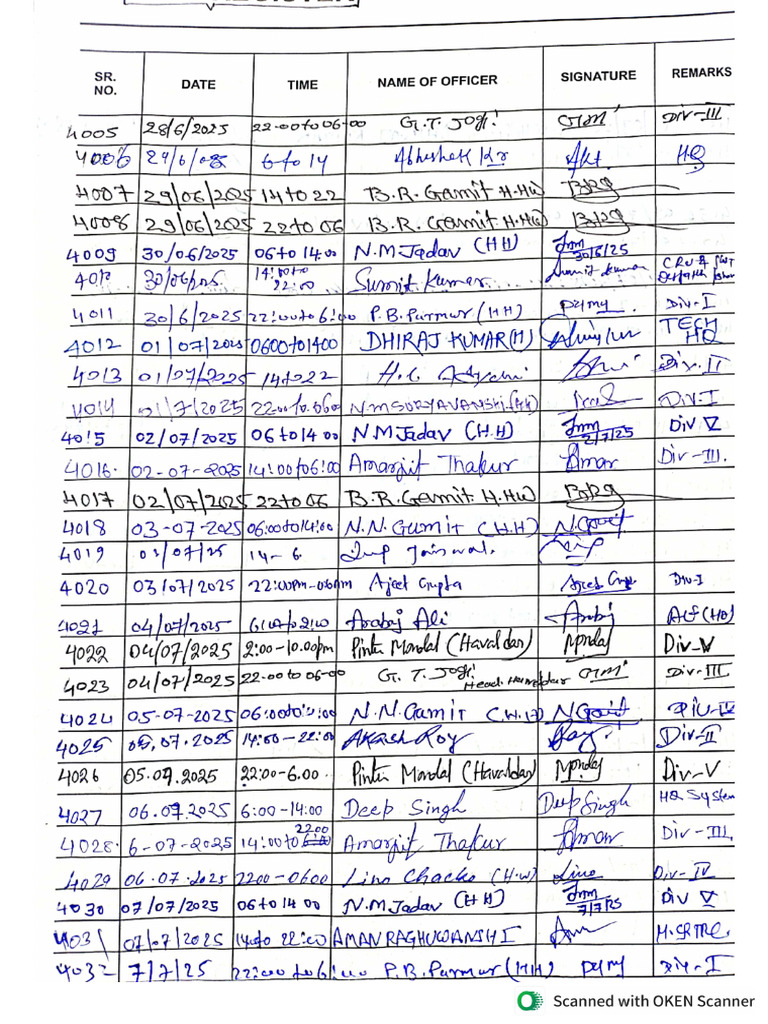 SR. NO. DATE TIME NAME OF OFFICER SIGNATURE REMARKS
4005 28/6/2025 22-00to06-00 G.T. Jogi Div-III
4006 29/6/ 6 to 14 Abhishek Kr HQ
4007 29/06/2025 14 to 22 B.R. Gamit H.HW
4008 29/06/2025 22 to 06 B.R. Gamit H.HW
4009 30/06/2025 06 to 14:00 N.M Jadav (HH) 30/6/25
4010 30/06/ 14:00 to 22:00 Sumit Kumar Sumit Kumar
4011 30/6/2025 22:00 to 6:00 P.B. Parmar (HH) Div-I
4012 01/07/2025 0600to1400 DHIRAJ KUMAR(H) TECH HQ
4013 01/07/2025 14 to 22 Div-II
4014 01/7/2025 22.00 to 0600 N.M SURYAVANSHI.(HH) Div-I
4015 02/07/2025 06 to 14 00 N.M Jadav (H.H) 2/7/25 Div V
4016. 02-07-2025 14:00 to 06:00 Amarjit Thakur Amar Div-III.
4017 02/07/2025 22 to 06 B.R. Gamit H.HW
4018 03-07-2025 06:00to14:00 N.N. Gamit (H.H)
4019 03/07/25 14- 6. Jaiswal.
4020 03/07/2025 22:00PM-06AM Ajeet Gupta Div-I
4021 04/07/2025 Arabaj Ali Arabaj
4022 04/07/2025 2:00-10.00pm Pintu Mondal (Havaldar) Mondal Div-V
4023 04/07/2025 22-00 to 06-00 G. T. Jogi Head Hawaldar Div-III
4024 05-07-2025 N.N. Gamit Div-IV
4025 05.07.2025 14:00-22:00 Akash Roy Div-II
4026 05.07.2025 22:00-6.00. Pintu Mondal (Havaldar) Mondal Div-V
4027 06.07.2025 6:00-14:00 Deep Singh Deep Singh HQ System
4028. 6-07-2025 14:00 to 22.00 Amarjit Thakur Amar Div-III
4029 06.07.2025 2200-0600 Lino Chacko (H.W) Lino Div-IV
4030 07/07/2025 06 to 14 00 N.M Jadav (H H) Div V
4031 07/07/2025 14 to 22:00 AMAN RAGHUWANSHI
4032 7/7/25 22:00 to 6:00 P.B. Parmar (HH) Div-I
Scanned with OKEN Scanner